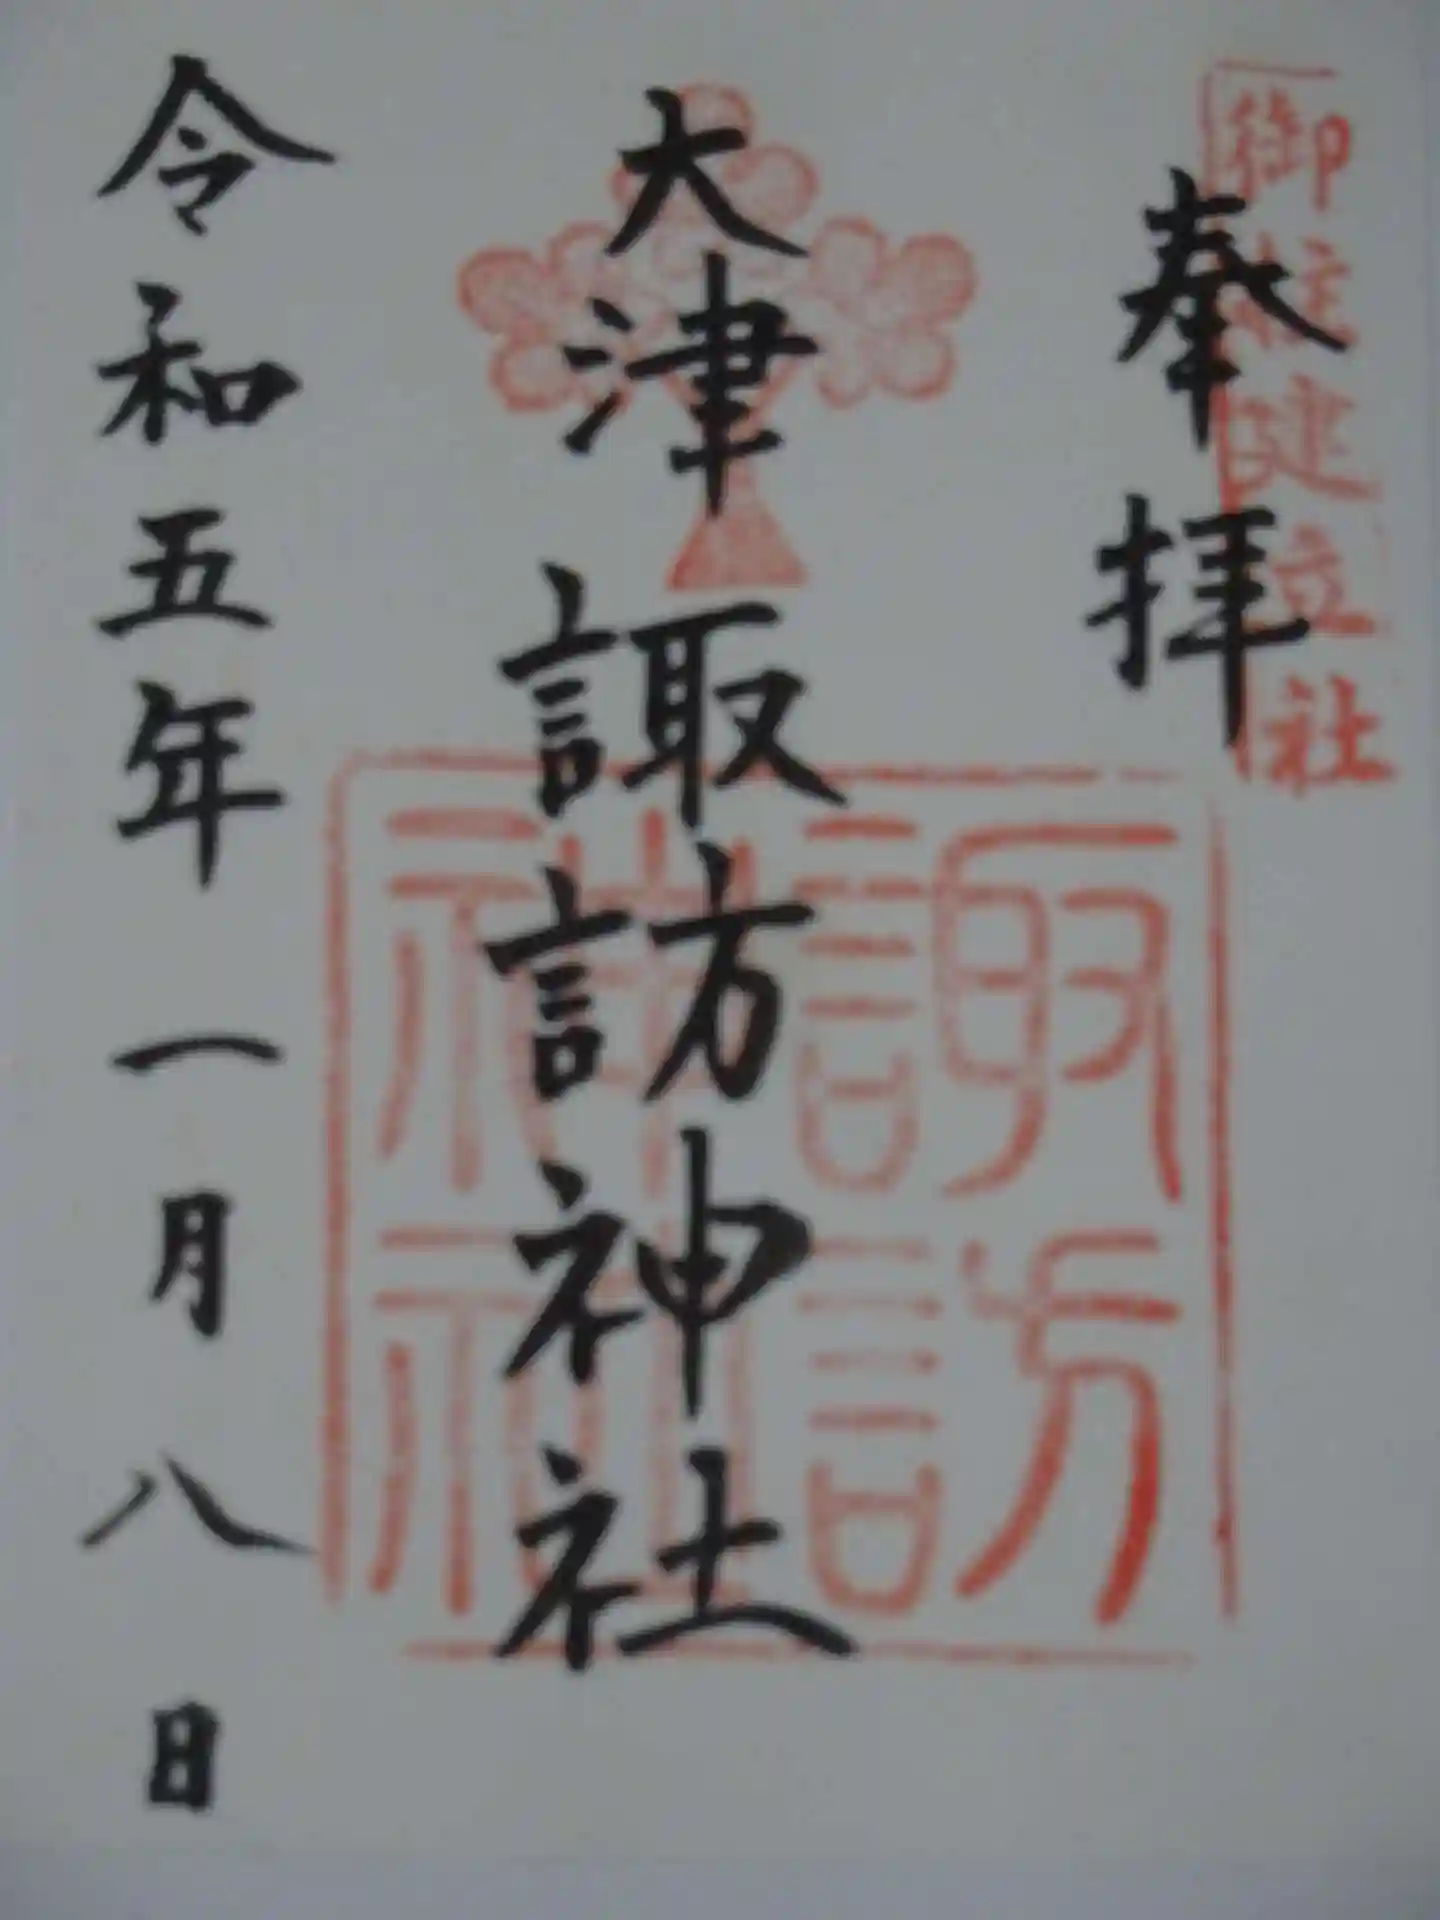 御柱建立社
奉拝
大津諏訪神社
諏訪神社
令和五年一月八日